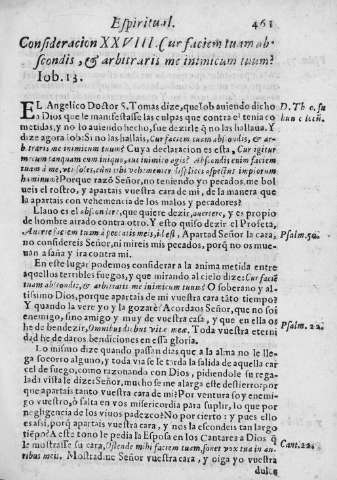 Espiritual. 461
Consideracion XXVIII. Cur faciem tuam ab-
scondis, & arbitraris me inimicum tuum?
Iob. 13.
EL Angelico Doctor S. Tomas dize, que Iob auiendo dicho
a Dios que le manifestasse las culpas que contra el tenia co
metidas, y no lo auiendo hecho, fue dezirle q̃ no las hallaua. Y
dize agora Iob: Si no las hallais, Cur faciem tuam abscondis, & ar-
bitraris me inimicum tuum? Cuya declaracion es esta, Cur igitur
mecum tanquam cum iniquo, aut inimico agis? Abscondis enim faciem
tuam à me,
hominum? Porque razõ Señor, no teniendo yo pecados, me bol
ueis el rostro, y apartais vuestra cara de mi, de la manera que
la apartais con vehemencia de los malos y pecadores?
Llano es el abscondere, que quiere dezir, auertere, y es propio
de hombre airado contra otro. Y esto quiso dezir el Profeta,
Auerte faciem tuam à peccatis meis, id est, Apartad Señor la cara,
no considereis Señor, ni mireis mis pecados, porq̃ no os mue-
uan a saña y ira contra mi.
En este lugar podemos considerar a la anima metida entre
aquellos terribles fuegos, y que mirando al cielo dize: Cur faciẽ
tuam abscondis, & arbitraris me inimicum tuum? O soberano y al-
tissimo Dios, porque apartais de mi vuestra cara tãto tiempo?
Y quando la vere yo y la gozarè? Acordaos Señor, que no soi
enemigo, sino amigo y muy de vuestra casa, y que en ella os
he de bendezir, Omnibus diebus vitæ meæ. Toda vuestra eterni
dad he de daros bendiciones en essa gloria.
Lo mismo dize quando passan dias que a la alma no le lle-
ga socorro alguno, y toda via se le tarda la salida de aquella car
cel de fuego, como razonando con Dios, pidiendole su rega-
lada vista le dize: Señor, mucho se me alarga este destierro: por
que apartais tanto vuestra cara de mi? Por ventura so y enemi-
go vuestro, ò falta en vos misericordia para suplir, lo que por
negligencia de los viuos padezco? No por cierto: y pues ello
es assi, porq̃ apartais vuestra cara, y nos la escondeis tan largo
tiẽpo? A este tono le pedia la Esposa en los Cantares a Dios q̃
le mostrasse su cara, Ostende mihi faciem tuam, sonet vox tua in au-
ribus meis. Mostradme Señor vuestra cara, y oiga yo vuestra
dulce
D. Th
Psalm. 50.
Psalm. 22.
Cant.